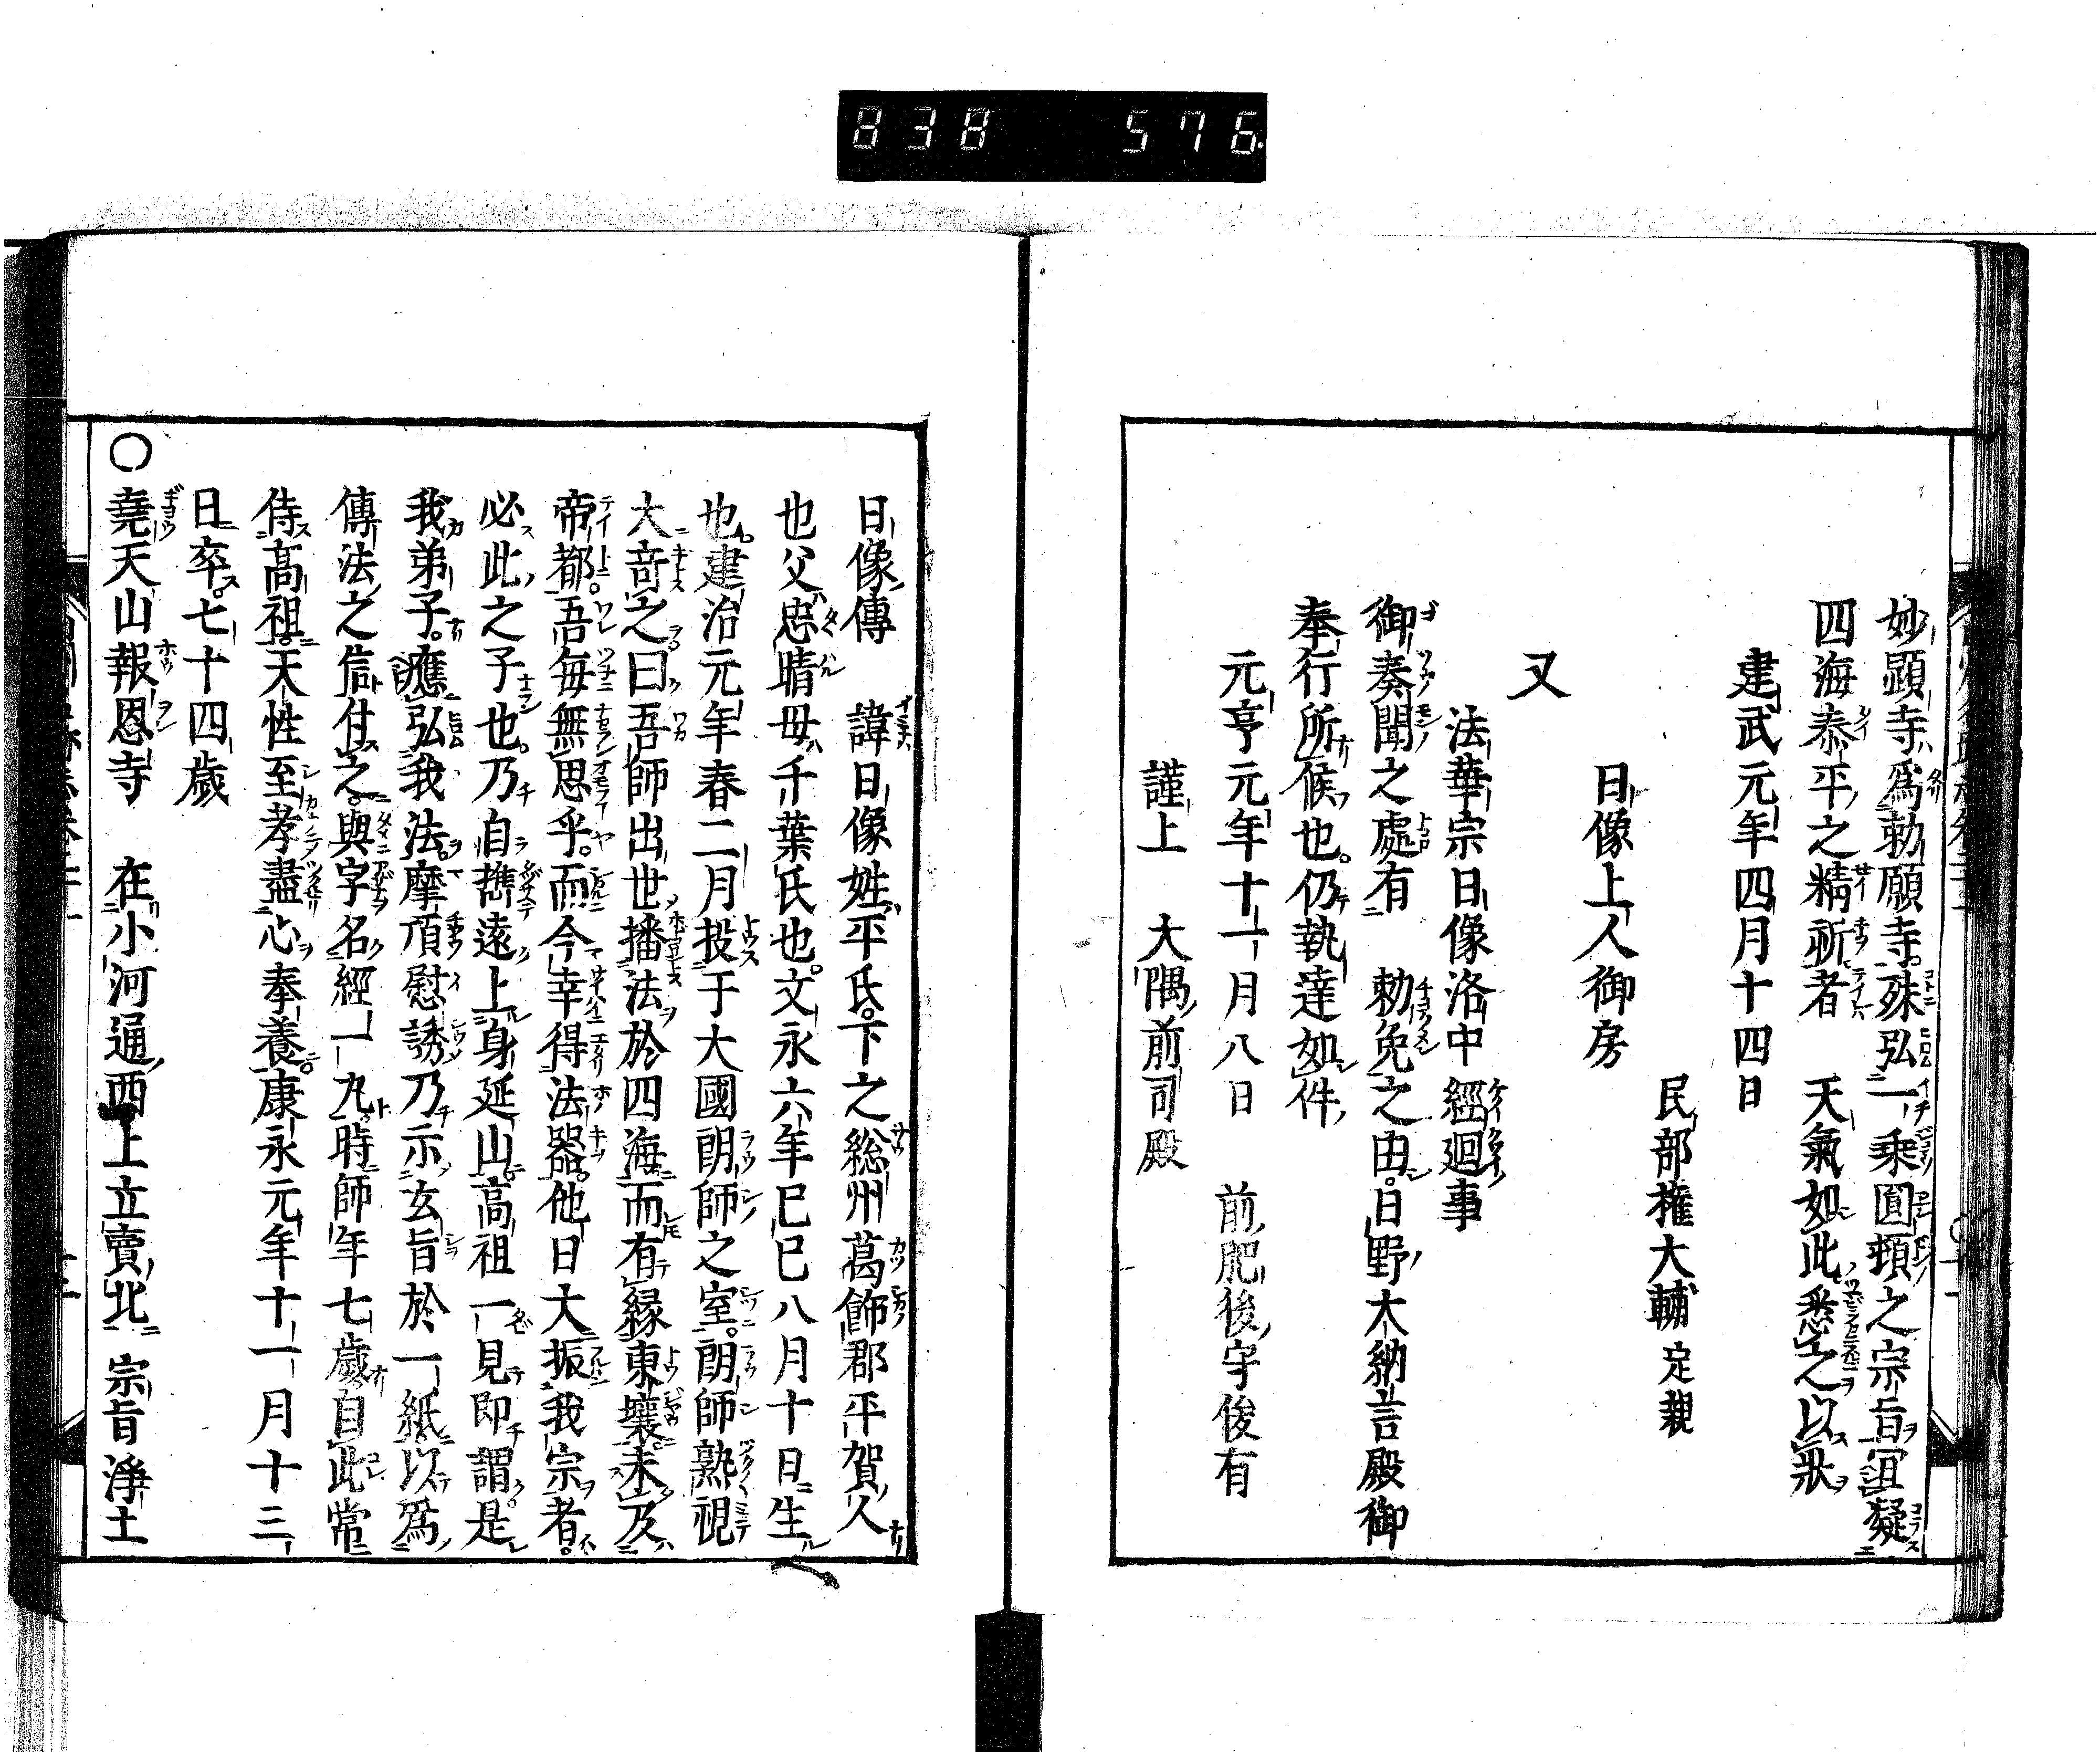 838 576
妙顯寺爲勅願寺殊弘一乗圓頓之宗旨冝凝
四海泰平之精祈者　天氣如此悉之以狀
建武元年四月十四日
民部権大輔定親
日像上人御房
又
法華宗日像洛中經廻事
御奏聞之處有　勅免之由日野大納言殿御
奉行所候也仍執達如件
元亨元年十一月八日　前肥後守俊有
謹上　大隅前司殿
日像傳　諱日像姓平氏下之総州葛飾郡平賀人
也父忠晴母千葉氏也文永六年巳巳八月十日生
也建治元年春二月投于大國朗師之室朗師熟視
大竒之曰吾師出世播法於四海而有縁東壤未及
帝都吾毎無思乎而今幸得法器他日大振我宗者
必此之子也乃自攜遠上身延山高祖一見即謂是
我弟子應弘我法摩頂慰誘乃示玄旨於一紙以爲
傳法之信付之與字名經一丸時師年七歳自此常
侍髙祖天性至孝盡心奉養康永元年十一月十三
日卒七十四歳
〇堯天山報恩寺　在小河通西上立賣北　宗旨淨土